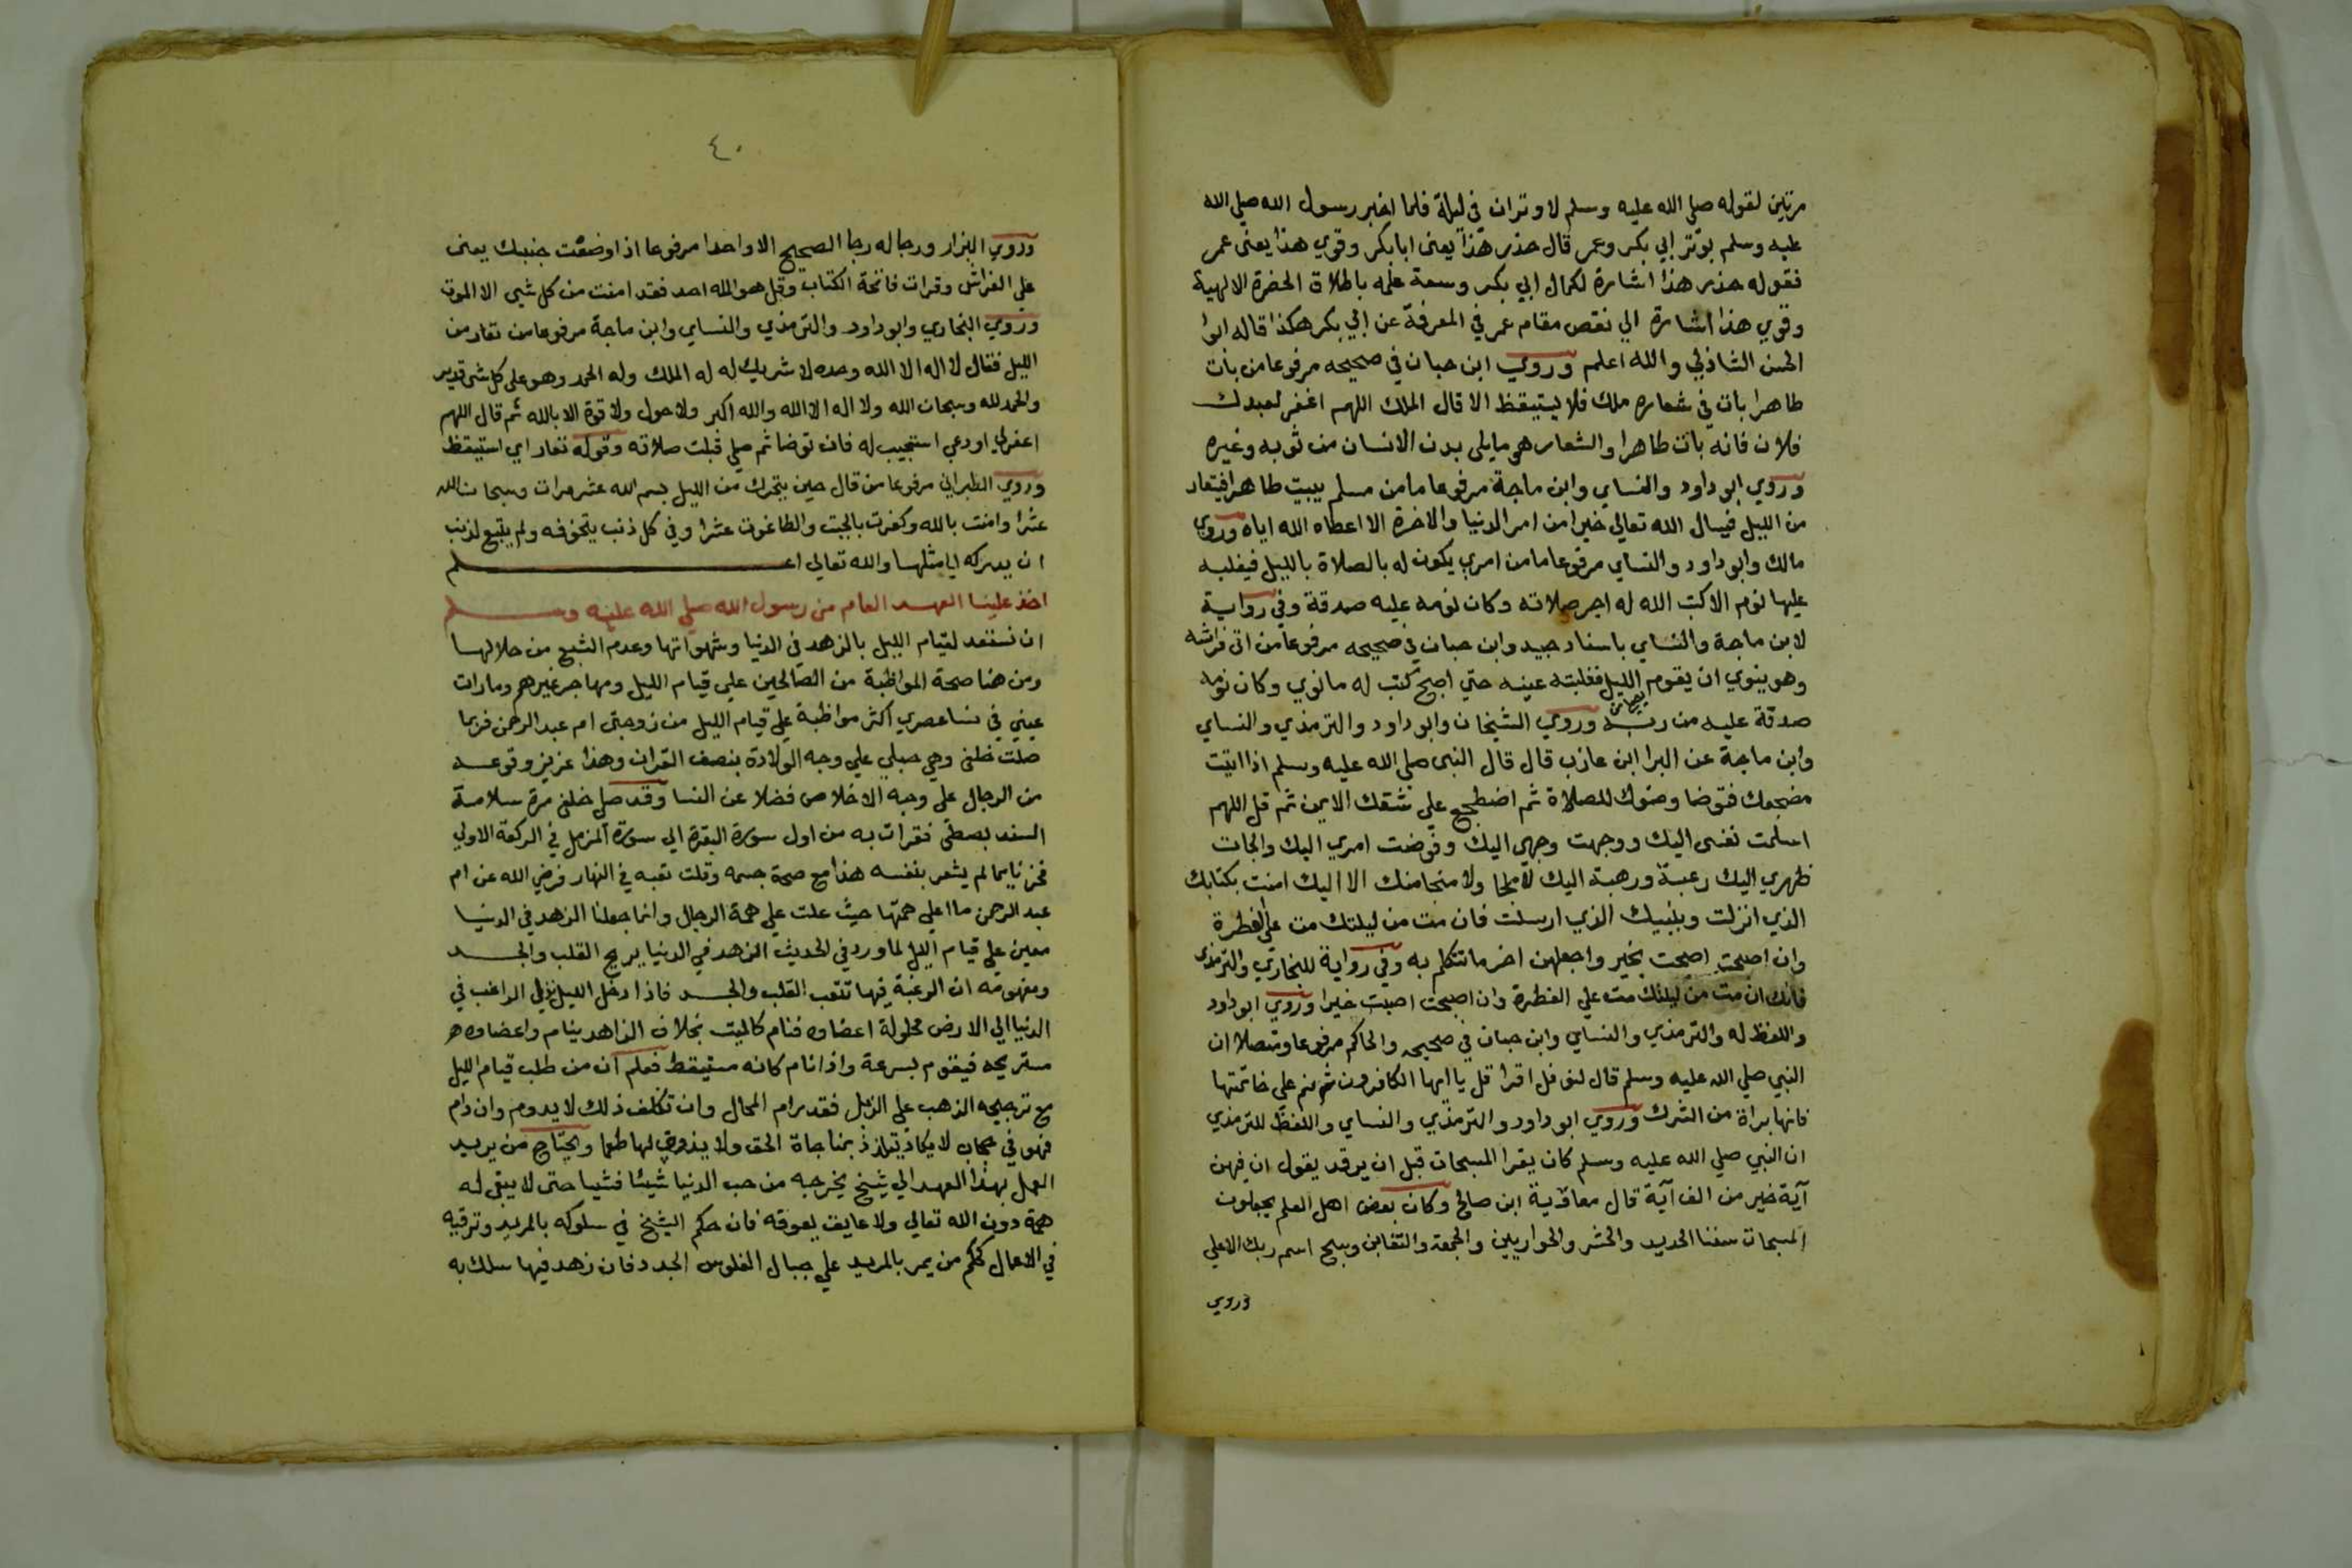 مرتين لقوله صلي الله عليه وسلم لا وتران في ليلة فلما اخبر رسول الله صلي الله
عليه وسلم بوتر ابي بكر وعمر قال حذر هذا يعني ابا بكر وقوي هذا يعني عمر
فقوله حذر هذا اشارة لكمال ابي بكر وسعة علمه باطلاق الحضرة الالهية
وقوي هذا اشارة الي نقص مقام عمر في المعرفة عن ابي بكر هكذا قاله ابوا
الحسن الشاذلي والله اعلم وروي ابن حبان في صحيحه مرفوعا من بات
طاهرا بات في شعاره ملك فلا يستيقظ الا قال الملك اللهم اغفر لعبدك
فلان فانه بات طاهرا والشعار هو ما يلي بدن الانسان من ثوبه وغيره
وروي ابو داود والنساي وابن ماجة مرفوعا ما من مسلم يبيت طاهرا فيتعار
من الليل فيسال الله تعالي خيرا من امر الدنيا والاخرة الا اعطاه الله اياه وروي
مالك وابو داود والنساي مرفوعا ما من امري يكون له بالصلاة بالليل فيغلبه
عليها نوم الا كتب الله له اجر صلاته وكان نومه عليه صدقة وفي رواية
لابن ماجة والنساي باسناد جيد وابن حبان في صحيحه مرفوعا من اتي فراشه
وهو ينوي ان يقوم الليل فغلبته عينه حتي اصبح كتب له ما نوي وكان نومه
صدقة عليه من ربه وروي الشيخان وابو داود والترمذي والنساي
وابن ماجة عن البرا ابن عازب قال قال النبي صلي الله عليه وسلم اذا اتيت
مضجعك فتوضا وضوك للصلاة ثم اضطجع علي شقك الايمن ثم قل اللهم
اسلمت نفسي اليك ووجهت وجهي اليك وفوضت امري اليك والجات
ظهري اليك رغبة ورهبة اليك لا ملجا ولا منجا منك الا اليك امنت بكتابك
الذي انزلت وبنبيك الذي ارسلت فان مت من ليلتك مت علي الفطرة
وان اصبحت اصبحت بخير واجعلهن اخر ما تتكلم به وفي رواية للبخاري والترمذي
فانك ان مت من ليلتك مت علي الفطرة وان اصبحت اصبت خيرا وروي ابو داود
واللفظ له والترمذي والنساي وابن حبان في صحيحه والحاكم مرفوعا ومتصلا ان
النبي صلي الله عليه وسلم قال لنوفل اقرا قل يا ايها الكافرون ثم نم علي خاتمتها
فانها براة من الشرك وروي ابو داود والترمذي والنساي واللفظ للترمذي
ان النبي صلي الله عليه وسلم كان يقرا المسبحات قبل ان يرقد يقول ان فيهن
آية خير من الف آية قال معاوية ابن صالح وكان بعض اهل العلم يجعلون
المسبحات ستا الحديد والحشر والحواريين والجمعة والتغابن وسبح اسم ربك الاعلي
وروي
٤٠
وروي البزار ورجاله رجا الصحيح الا واحدا مرفوعا اذا وضعت جنبك يعني
علي الفراش وقرات فاتحة الكتاب وقل هو الله احد فقد امنت من كل شي الا الموت
وروي البخاري وابو داود والترمذي والنساي وابن ماجة مرفوعا من تعار من
الليل فقال لا اله الا الله وحده لا شريك له له الملك وله الحمد وهو علي كل شي قدير
والحمد لله وسبحان الله ولا اله الا الله والله اكبر ولا حول ولا قوة الا بالله ثم قال اللهم
اغفر لي او دعي استجيب له فان توضا ثم صلي قبلت صلاته وقوله تعار اي استيقظ
وروي الطبراني مرفوعا من قال حين يتحرك من الليل بسم الله عشر مرات وسبحان الله
عشرا وامنت بالله وكفرت بالجبت والطاغوت عشرا وقي كل ذنب يتخوفه ولم يتبع لذنب
ان يدركه الي مثلها والله تعالي اعلم
اخذ علينا العهد العام من رسول الله صلي الله عليه وسلم
ان نستعد لقيام الليل بالزهد في الدنيا وشهواتها وعدم الشبع من حلالها
ومن هنا صحة المواظبة من الصالحين علي قيام الليل ومهاجر غيرهم وما رات
عيني في نسا عصري اكثر مواظبة علي قيام الليل من زوجتي ام عبد الرحمن فربما
صلت خلفي وهي حبلي علي وجه الولادة بنصف القران وهذا عزيز وقوعه
من الرجال علي وجه الاخلاص فضلا عن النسا وقد صلي خلفي مرة سلامة
السند بصطي فقرات به من اول سورة البقرة الي سورة المزمل في الركعة الاولي
فخر نايما لم يشعر بنفسه هذا مع صحة جسمه وقلت تعبه في النهار فرضي الله عن ام
عبد الرحمن ما اعلي همتها حيث علت علي همة الرجال وانما جعلنا الزهد في الدنيا
معين علي قيام الليل لما ورد في الحديث الزهد في الدنيا يريح القلب والجسد
ومفهومه ان الرغبة فيها تتعب القلب والجسد فاذا دخل الليل نزل الراغب في
الدنيا الي الارض محلولة اعضاوه فنام كالميت بخلاف الزاهد ينام واعضاوه
مستريحه فيقوم بسرعة واذا نام كانه مستيقظ فعلم ان من طلب قيام الليل
مع ترجيحه الذهب علي الزبل فقد رام المحال وان تكلف ذلك لا يدوم وان دام
فهو في حجاب لا يكاد يتلذذ بمناجاة الحق ولا يذوق لها طعما ويحتاج من يريد
العمل بهذا العهد الي شيخ يخرجه من حب الدنيا شيئا فشيا حتي لا يبقي له
همة دون الله تعالي ولا عايق يعوقه فان حكم الشيخ في سلوكه بالمريد وترقيه
في الاعمال كحكم من يمر بالمريد علي جبال الفلوس الجدد فان زهد فيها سلك به